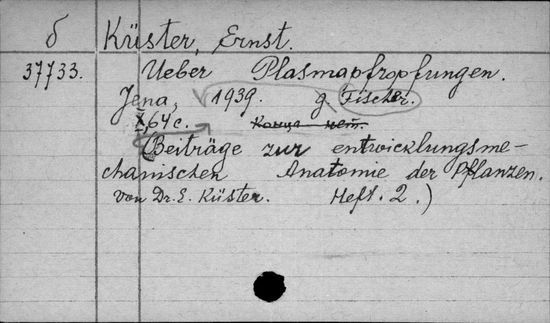 б Küster, Ernst.
37733. Ueber Plasmapfropfungen.
Jena, 1939. g. Fischer.
X, 64 c. Конца нет.
(Beiträge zur entwicklungsme-
chanischen Anatomie der Pflanzen.
von Dr. E. Küster. Heft. 2.)